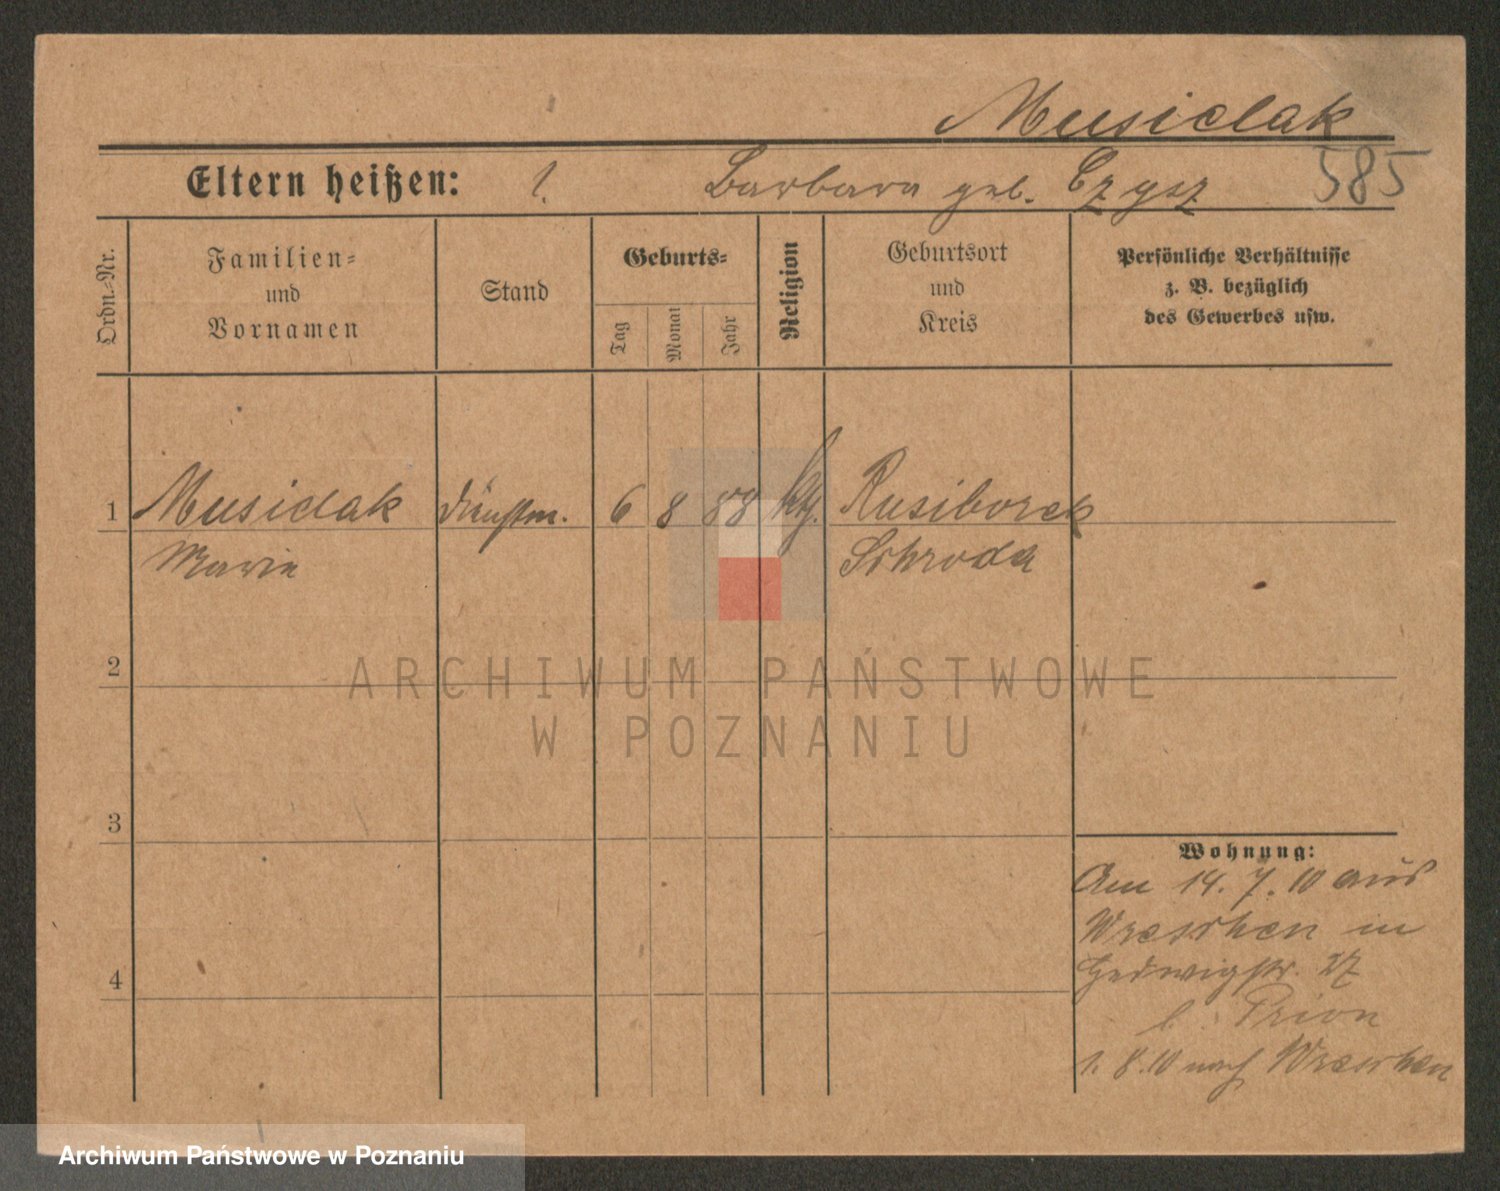 Musielak
585
Eltern heißen: 1. Barbara geb. Czysz
Ordn.-Nr.
Familien-
und
Vornamen
Stand
Geburts-
Tag
Monat
Jahr
Religion
Geburtsort
und
Kreis
Persönliche Verhältnisse
z. B. bezüglich
des Gewerbes usw.
1 Musielak Dienstm. 6 8 88 kth. Rusiborek
Marie Schroda
2
3
4
Wohnung:
Am 14. 7. 10 aus
Wreschen in
Hedwigstr. 27
b. Prion
1. 8. 10 nach Wreschen
ARCHIWUM PAŃSTWOWE
W POZNANIU
Archiwum Państwowe w Poznaniu